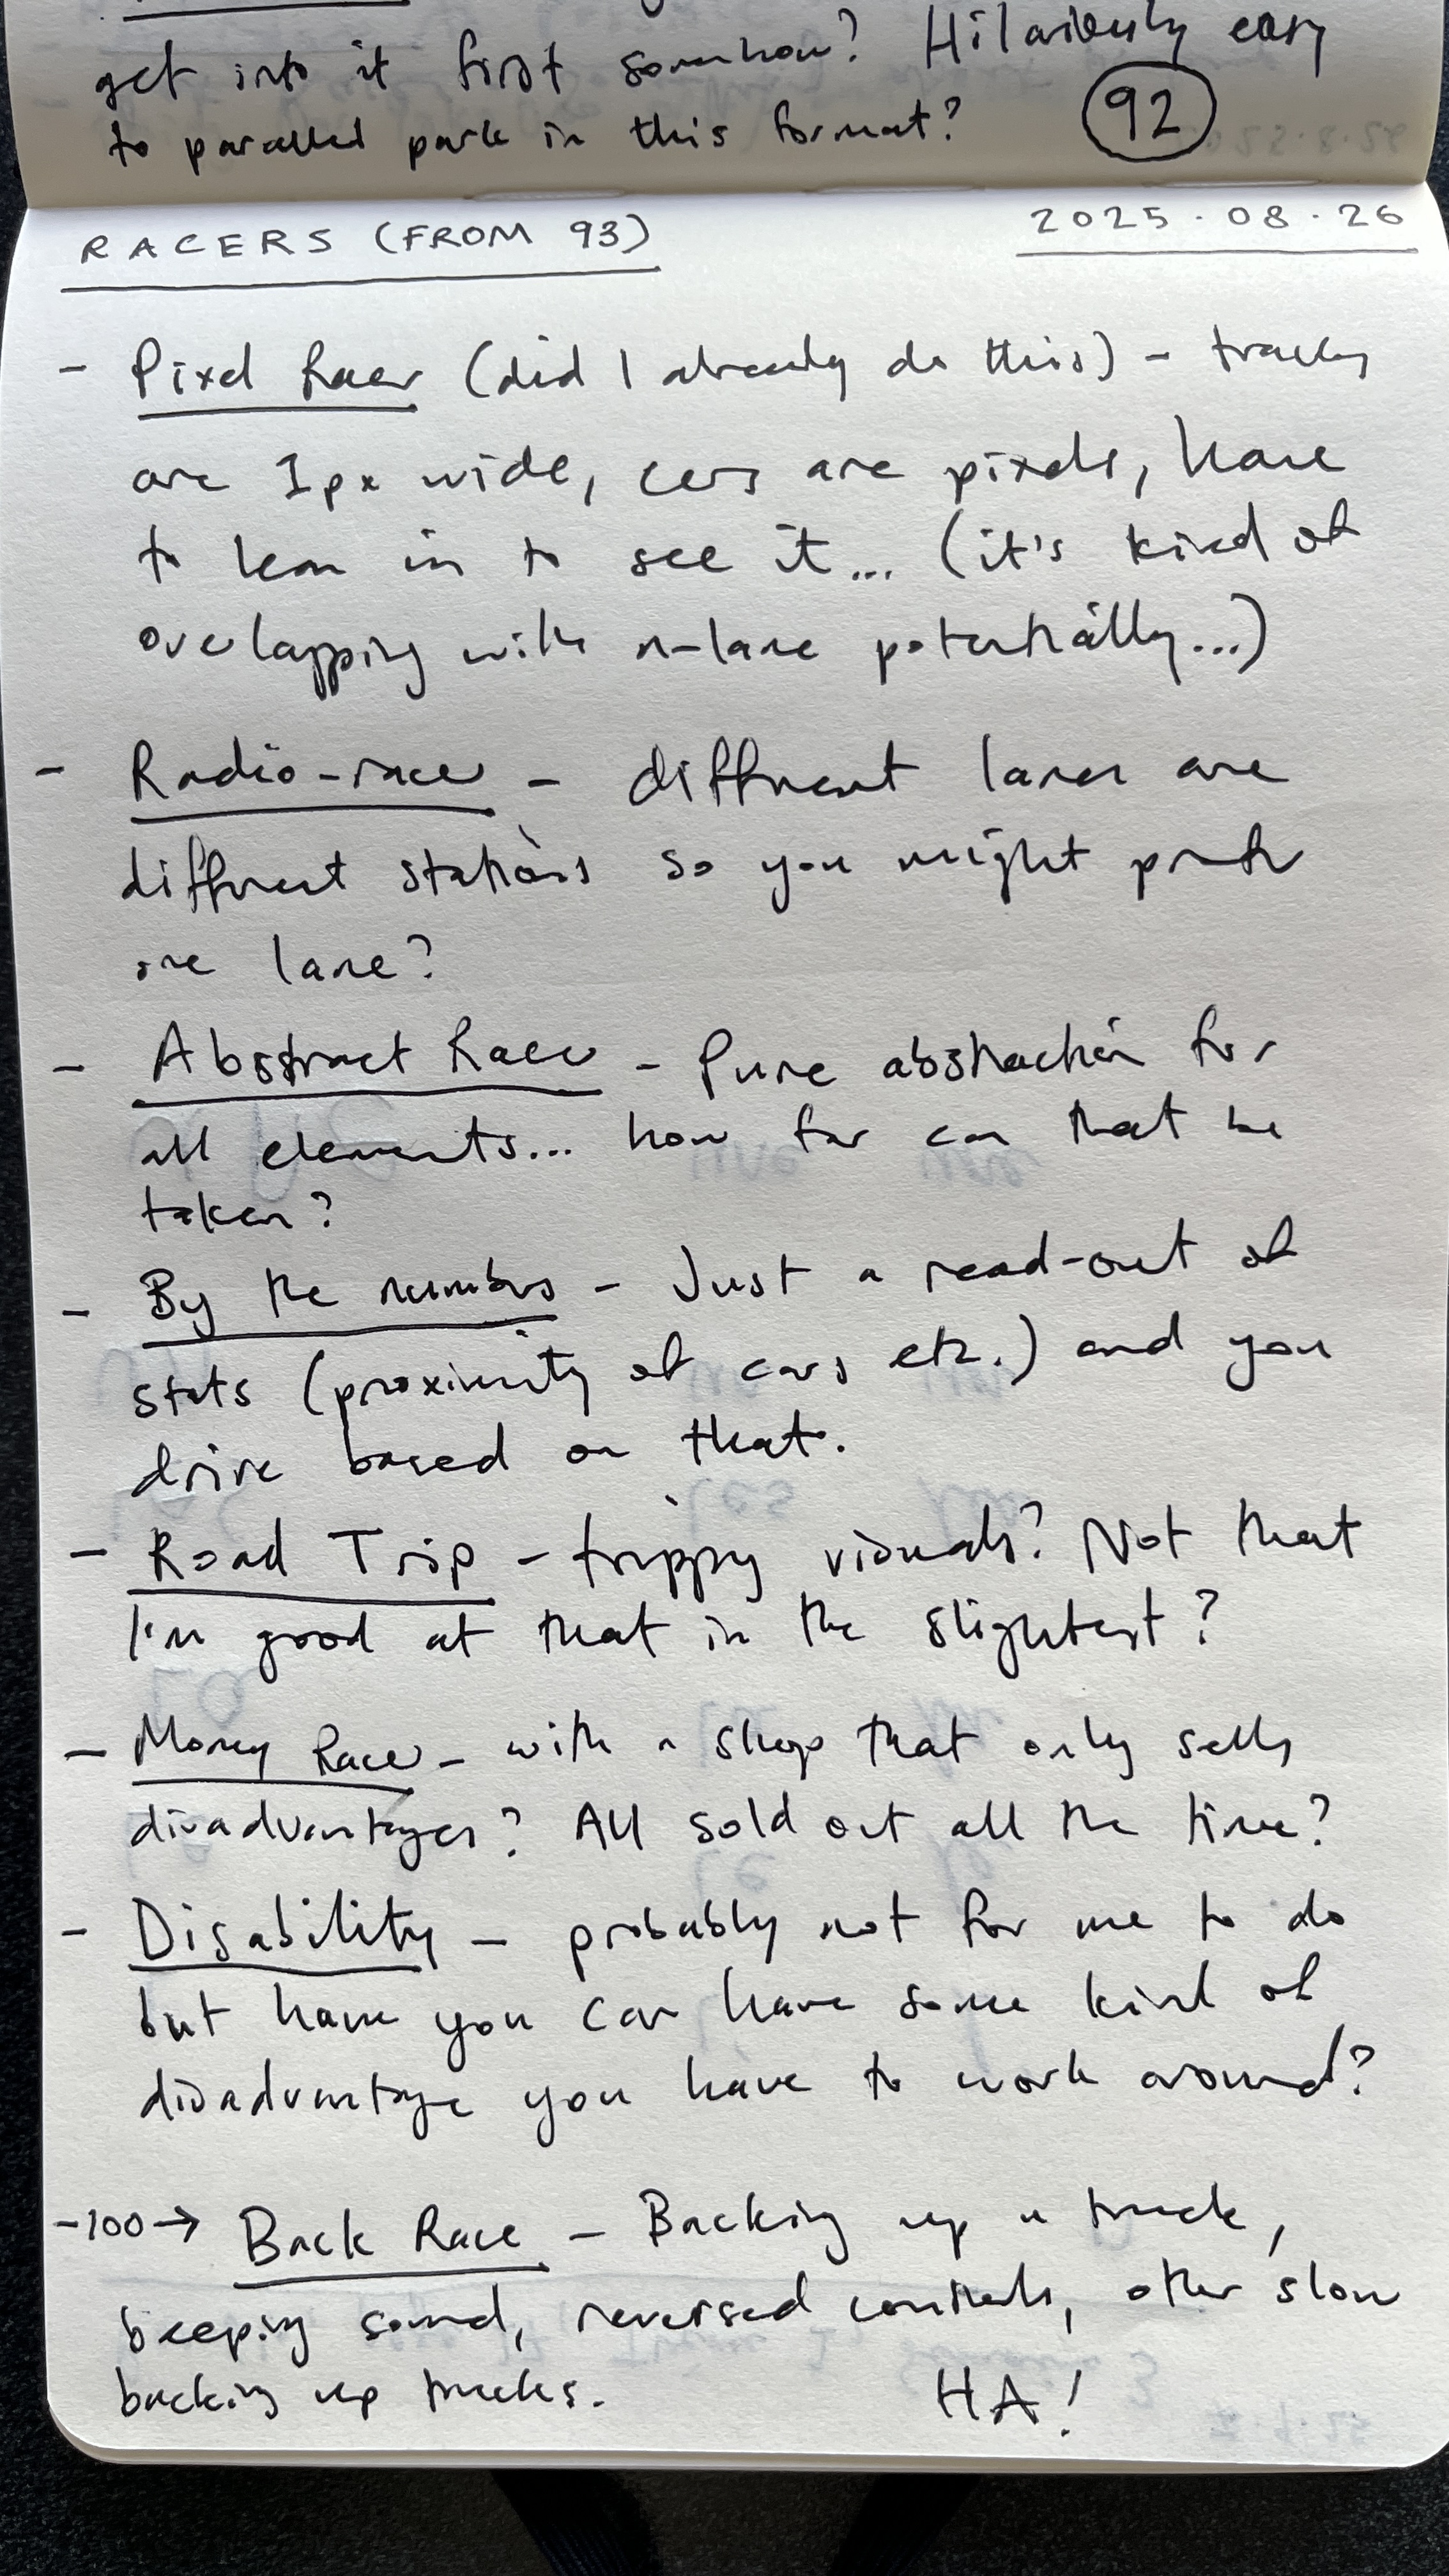 get into it first somehow? Hilariously easy
to parallel park in this format? 92
RACERS (FROM 93) 2025.08.26
- Pixel Racer (did I already do this) - tracks
are 1px wide, cars are pixels, have
to lean in to see it... (it's kind of
overlapping with n-lane potentially...)
- Radio-racer - different lanes are
different stations so you might prefer
one lane?
- Abstract Racer - Pure abstraction for
all elements... how far can that be
taken?
- By the numbers - Just a read-out of
stats (proximity of cars etc.) and you
drive based on that.
- Road Trip - trippy visuals? Not that
I'm good at that in the slightest?
- Money Racer - with a shop that only sells
disadvantages? All sold out all the time?
- Disability - probably not for me to do
but have you car have some kind of
disadvantage you have to work around?
- 100 → Back Race - Backing up a truck,
beeping sound, reversed controls, other slow
backing up trucks. HA!